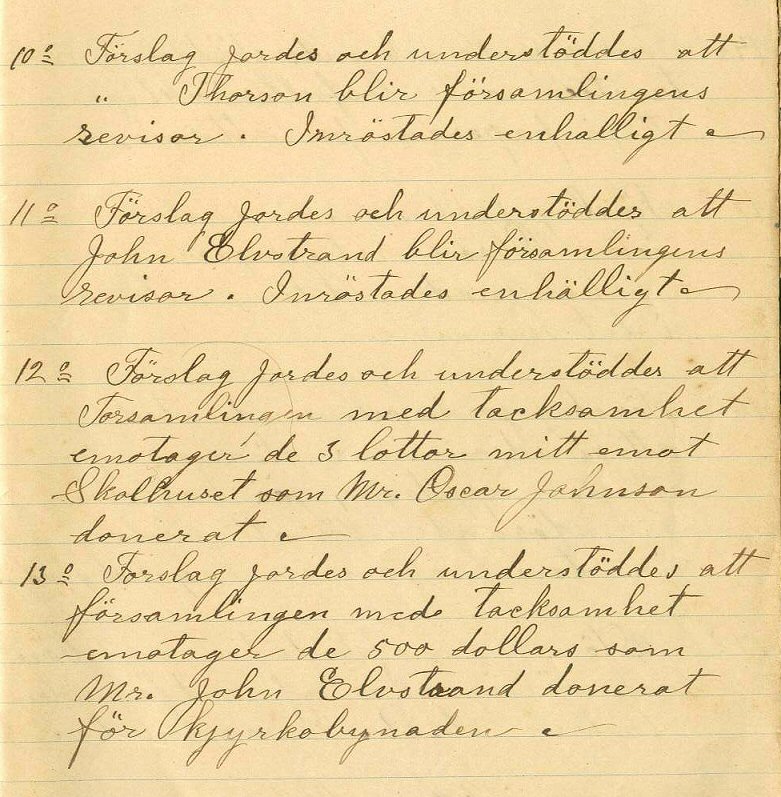 10º Förslag jordes och understöddes att
" Thorson blir församlingens
revisor. Inröstades enhalligt
11º Förslag jordes och understöddes att
John Elvstrand blir församlingens
revisor. Inröstades enhälligt
12º Förslag jordes och understöddes att
Forsamlingen med tacksamhet
emotager de 3 lottor mitt emot
Skolhuset som Mr. Oscar Johnson
donerat
13º Forslag jordes och understöddes att
församlingen med tacksamhet
emotager de 500 dollars som
Mr. John Elvstrand donerat
för kjyrkobynaden